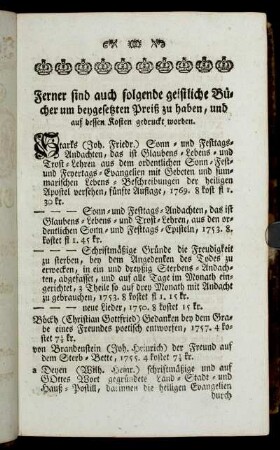 Ferner sind auch folgende geistliche Bü-
cher um beygesetzten Preiß zu haben, und
auf dessen Kosten gedruckt worden.
Starks (Joh. Friedr.) Sonn- und Festtags-
Andachten, das ist Glaubens-Lebens- und
Trost-Lehren aus dem ordentlichen Sonn-Fest-
und Feyertags-Evangelien mit Gebeten und sum-
marischen Lebens-Beschreibungen der heiligen
Apostel versehen, fünfte Auflage, 1769. 8 kost fl 1.
30 kr.
— — — Sonn- und Festtags-Andachten, das ist
Glaubens-Lebens- und Trost-Lehren, aus den or-
dentlichen Sonn- und Festtags-Episteln, 1753. 8.
kostet fl 1. 45 kr.
— — — Schriftmäßige Gründe die Freudigkeit
zu sterben, bey dem Angedenken des Todes zu
erwecken, in ein und dreyßig Sterbens-Andach-
ten, abgefasset, und auf alle Tage im Monath ein-
gerichtet, 3 Theile so auf drey Monath mit Andacht
zu gebrauchen, 1753. 8 kostet fl 1. 15 kr.
— — — neue Lieder, 1750. 8 kostet 15 kr.
Böckh (Christian Gottfried) Gedanken bey dem Gra-
be eines Freundes poetisch entworfen, 1757. 4 ko-
stet 7½ kr.
von Brandenstein (Joh. Heinrich) der Freund auf
dem Sterb-Bette, 1755. 4 kostet 7½ kr.
a Deyen (Wilh. Henr.) schriftmäßige und auf
GOttes Wort gegründete Land-Stadt- und
Hauß-Postill, darinnen die heiligen Evangelien
durch